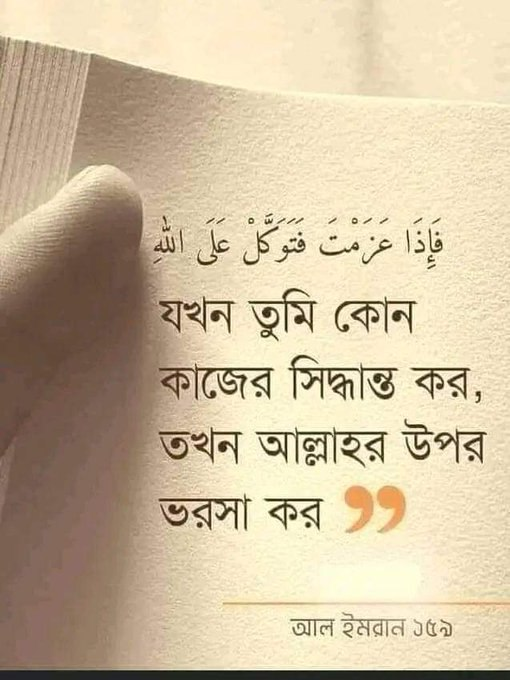 فَإِذَا عَزَمْتَ فَتَوَكَّلْ عَلَى اللهِ
যখন তুমি কোন
কাজের সিদ্ধান্ত কর,
তখন আল্লাহর উপর
ভরসা কর ”
আল ইমরান ১৫৯